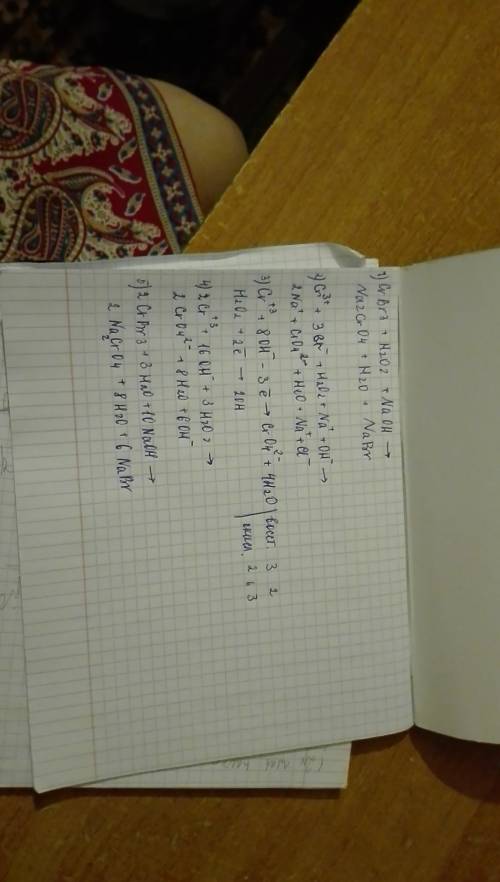 1) CrBr3 + H2O2 + NaOH →
Na2CrO4 + H2O + NaBr
2) Cr3+ + 3Br- + H2O2 + Na+ + OH- →
2Na+ + CrO4 2- + H2O + Na+ + Cl-
3) Cr+3 + 8OH- - 3e → CrO4 2- + 4H2O | восст. 3 2
H2O2 + 2e → 2OH | окисл. 2 6 3
4) 2Cr+3 + 16OH- + 3H2O2 →
2CrO4 2- + 8H2O + 6OH-
5) 2CrBr3 + 3H2O + 10NaOH →
2 Na2CrO4 + 8H2O + 6NaBr